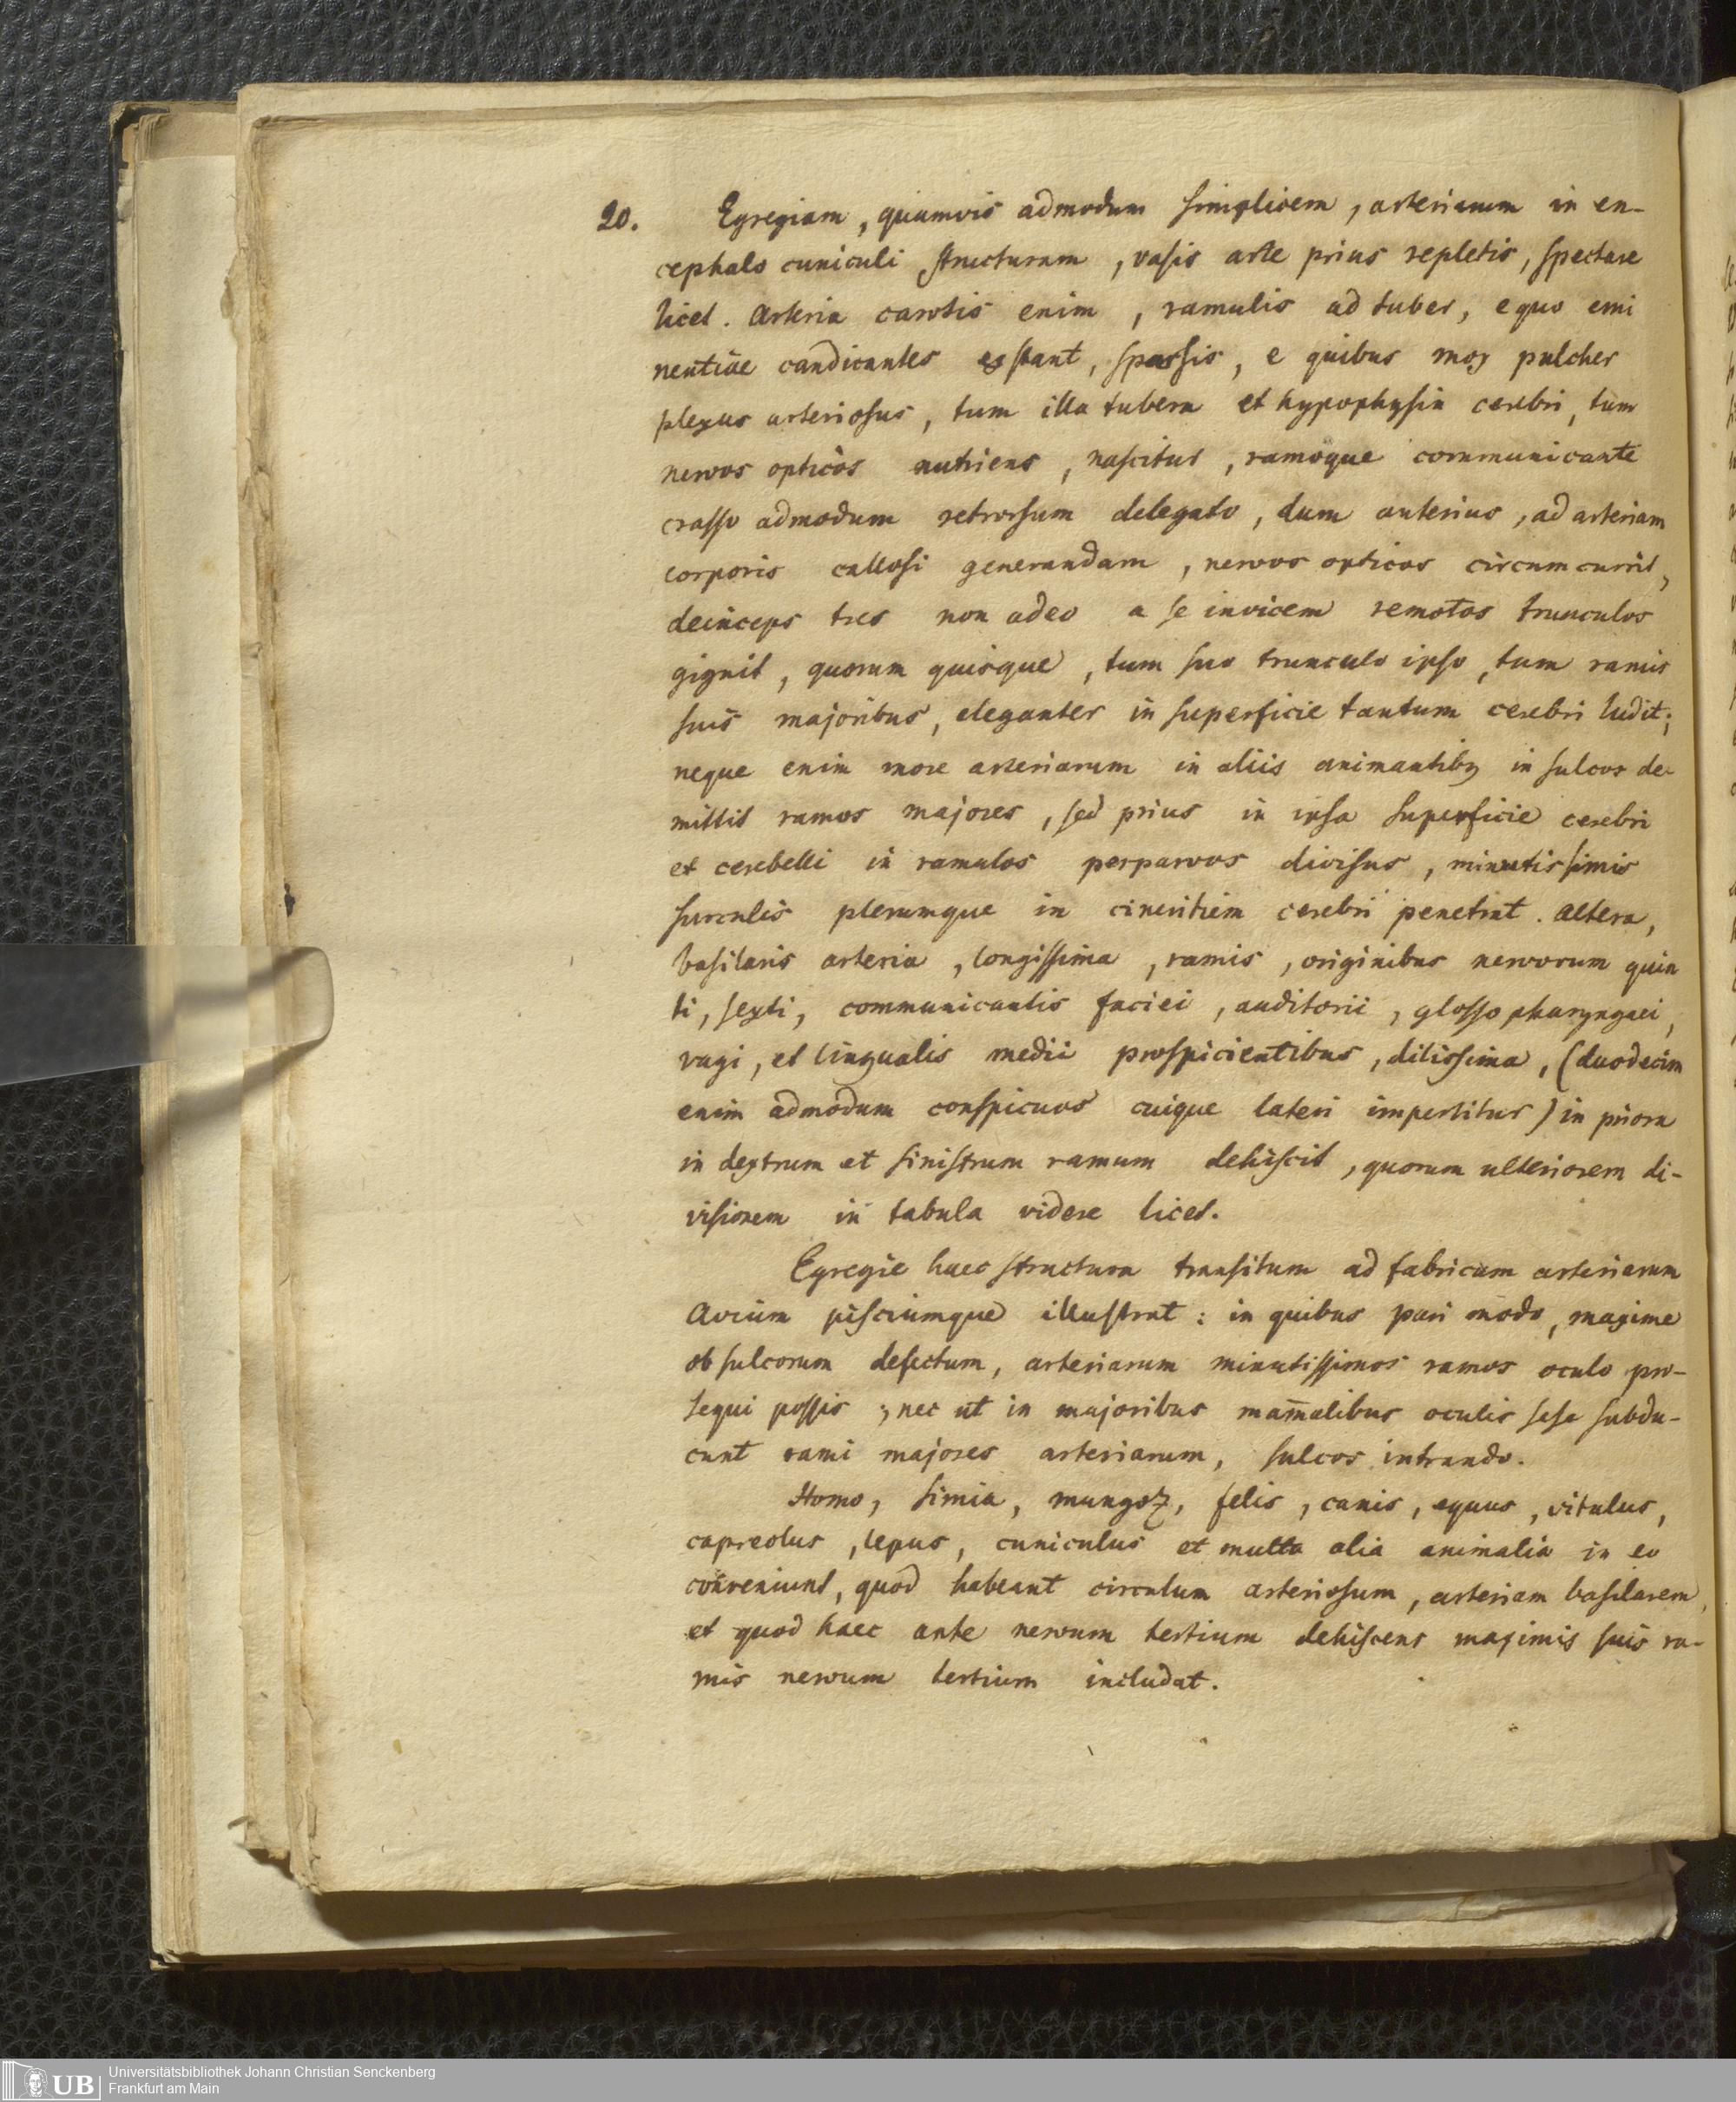 20. Egregiam, quamvis admodum simplicem, arteriarum in en-
cephalo cuniculi structuram, vasis arte prius repletis, spectare
licet. Arteria carotis enim, ramulis ad tuber, e quo emi
nentiae candicantes exstant, sparsis, e quibus mox pulcher
plexus arteriosus, tum illa tubera et hypophysin cerebri, tum
nervos opticos nutriens, nascitur, ramoque communicante
crasso admodum retrorsum delegato, dum anterius, ad arteriam
corporis callosi generandam, nervos opticos circumcurrit,
deinceps tres non adeo a se invicem remotos trunculos
gignit, quorum quisque, tum suo trunculo ipso, tum ramis
suis majoribus, eleganter in superficie tantum cerebri ludit;
neque enim more arteriarum in aliis animantibꝫ in sulcos de-
mittit ramos majores, sed prius in ipsa superficie cerebri
et cerebelli in ramulos perparvos divisus, minutissimis
surculis plerumque in cineritiem cerebri penetrat. Altera,
basilaris arteria, longissima, ramis, originibus nervorum quin
ti, sexti, communicantis faciei, auditorii, glossopharyngaei,
vagi, et lingualis medii prospicientibus, ditissima, (duodecim
enim admodum conspicuos cuique lateri impertitur) in priora
in dextrum et sinistrum ramum dehiscit, quorum ulteriorem di-
visionem in tabula videre licet.
Egregie haec structura transitum ad fabricam arteriarum
Avium pisciumque illustrat: in quibus pari modo, maxime
ob sulcorum defectum, arteriarum minutissimos ramos oculo pro-
sequi possis; nec ut in majoribus mam̄alibus oculis sese subdu-
cunt rami majores arteriarum, sulcos intrando.
Homo, simia, mungoz, felis, canis, equus, vitulus,
capreolus, lepus, cuniculus et multa alia animalia in eo
conveniunt, quod habeant circulum arteriosum, arteriam basilarem,
et quod haec ante nervum tertium dehiscens maximis suis ra-
mis nervum tertium includat.
UB Universitätsbibliothek Johann Christian Senckenberg
Frankfurt am Main